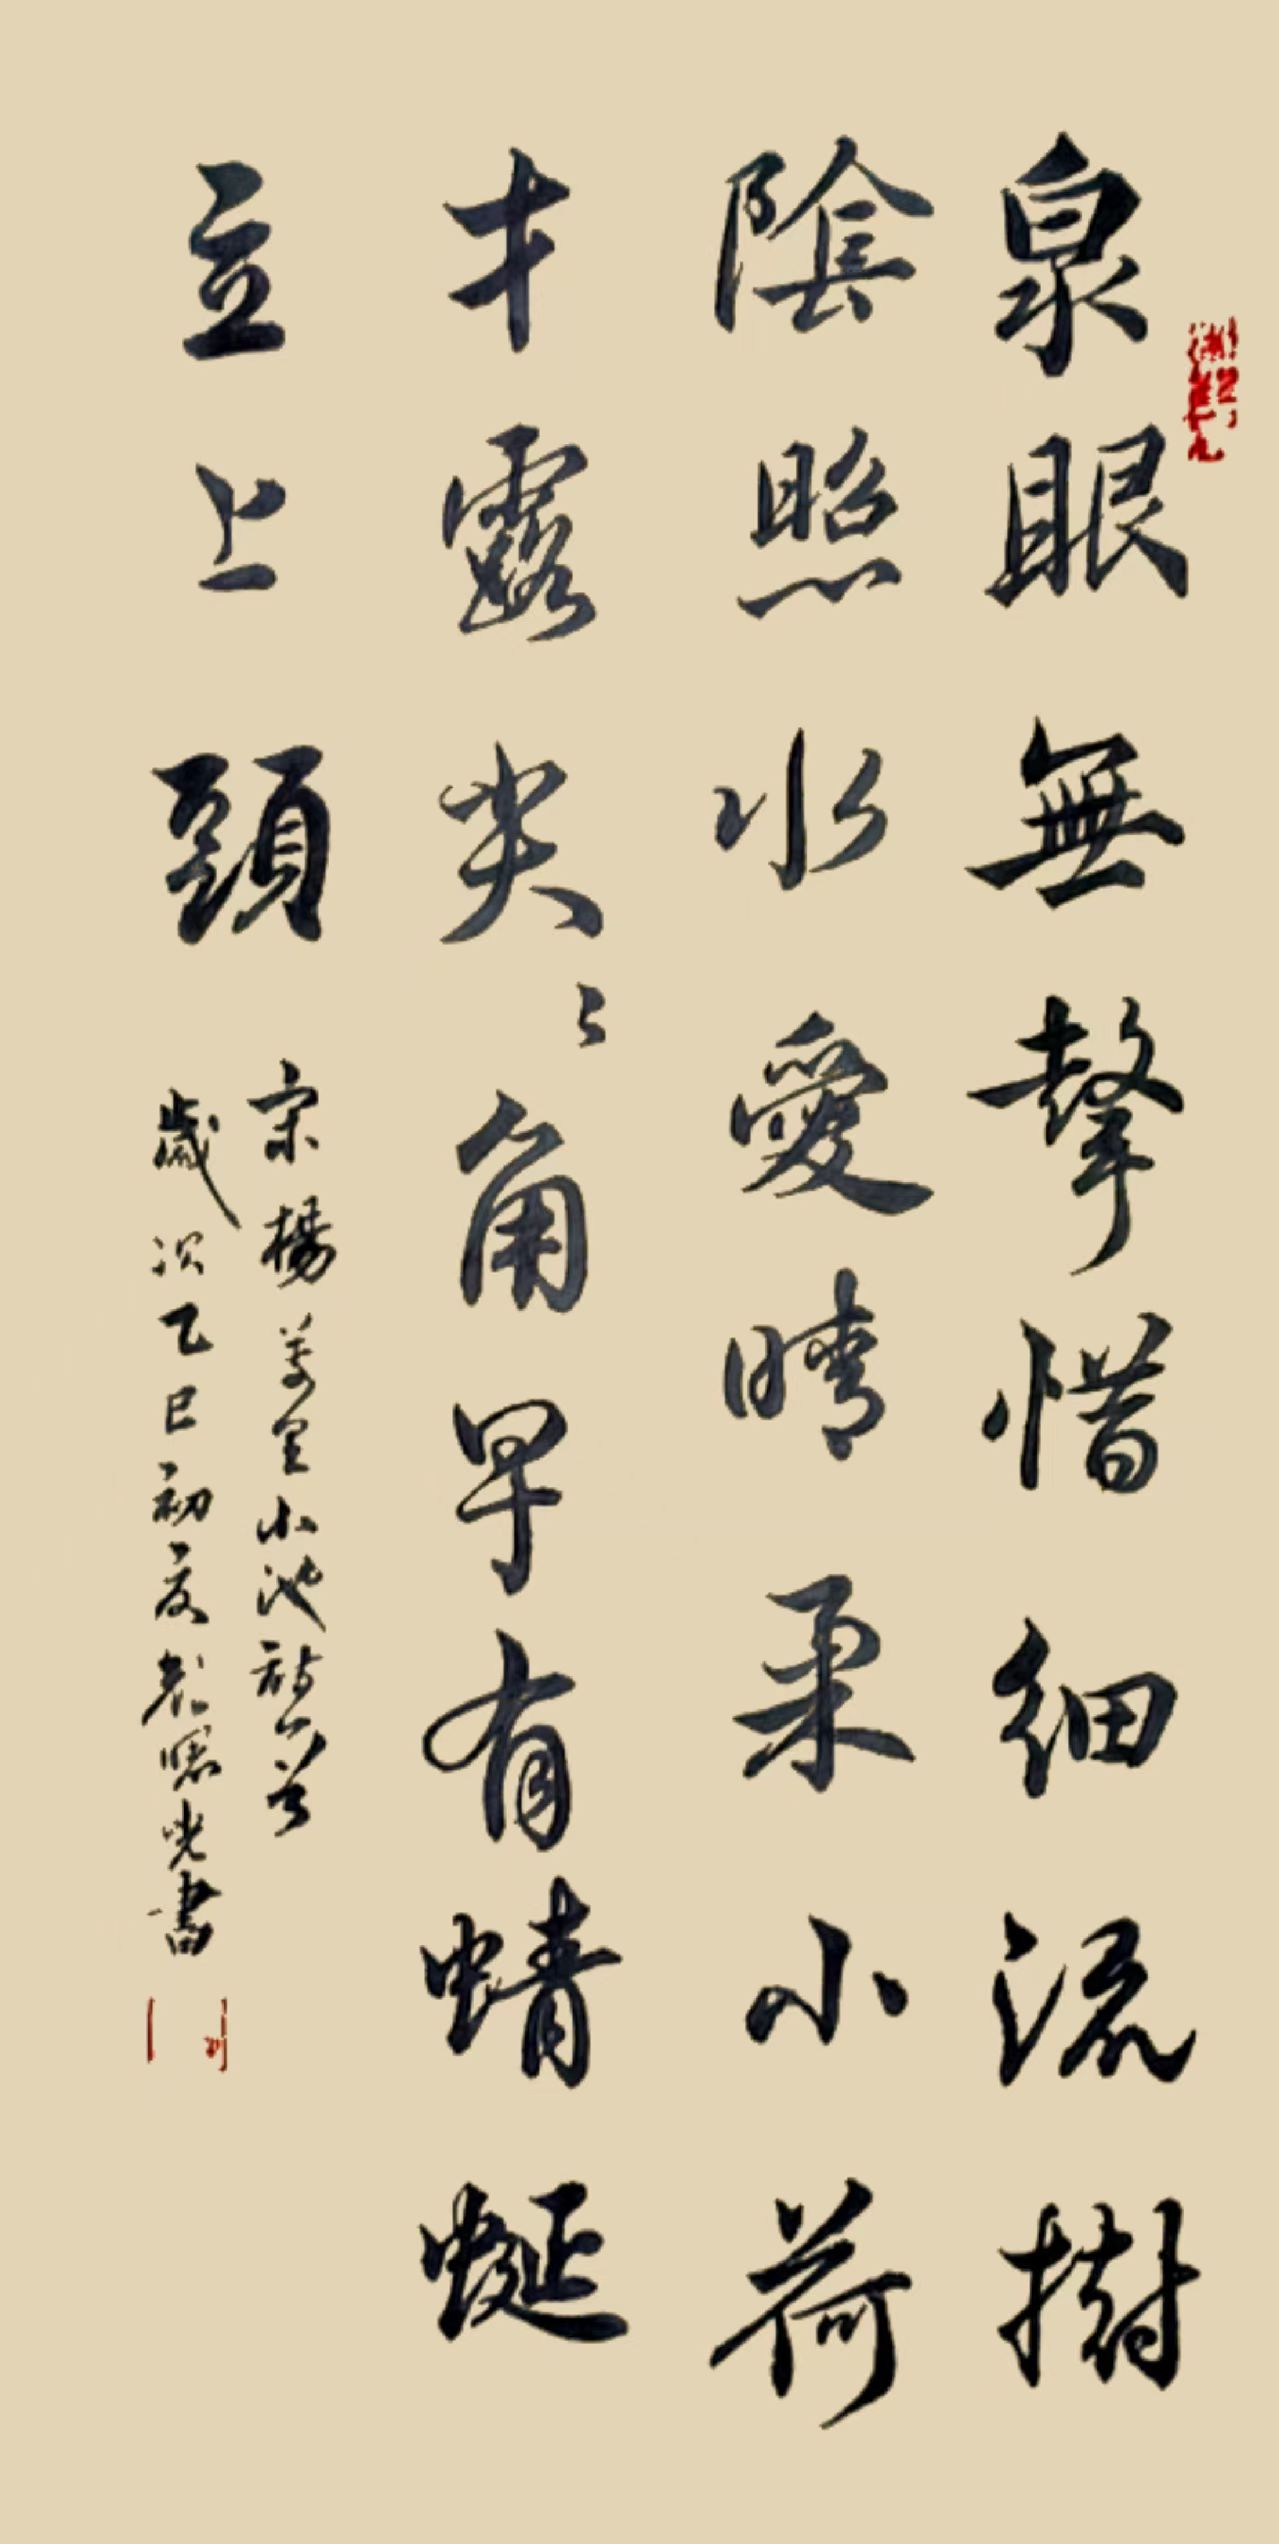 泉眼無聲惜細流樹
陰照水愛晴柔小荷
才露尖々角早有蜻蜓
立上頭
宋楊萬里小池詩一首
歲次乙巳初夏光書